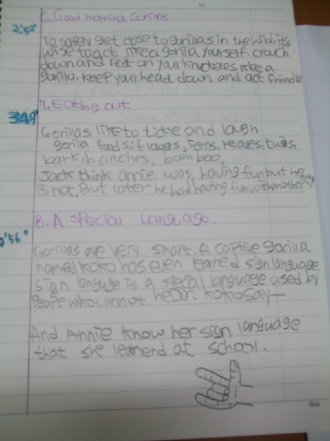 6. Good morning, Gorillas
2'52"
To safely get close to gorillas in the wild, it's
wise to act like a gorilla yourself. crouch
down and rest on your knuckles like a
gorilla. keep your head down and act friendly
7. Eating out
3'49"
Gorillas like to tickle and laugh.
gorilla food si: flowers, ferns, leaves, twigs
bark, branches, bamboo.
Jack think annie was having fun but he
is not. But later he had having fun with mother
8. A special Language.
56"
Gorillas are very smart. A captive gorilla
named koko has even learned sign language
sign language is a special language used by
people who cannot hear. koko say—
And Annie know her sign language
that she learnend at school.